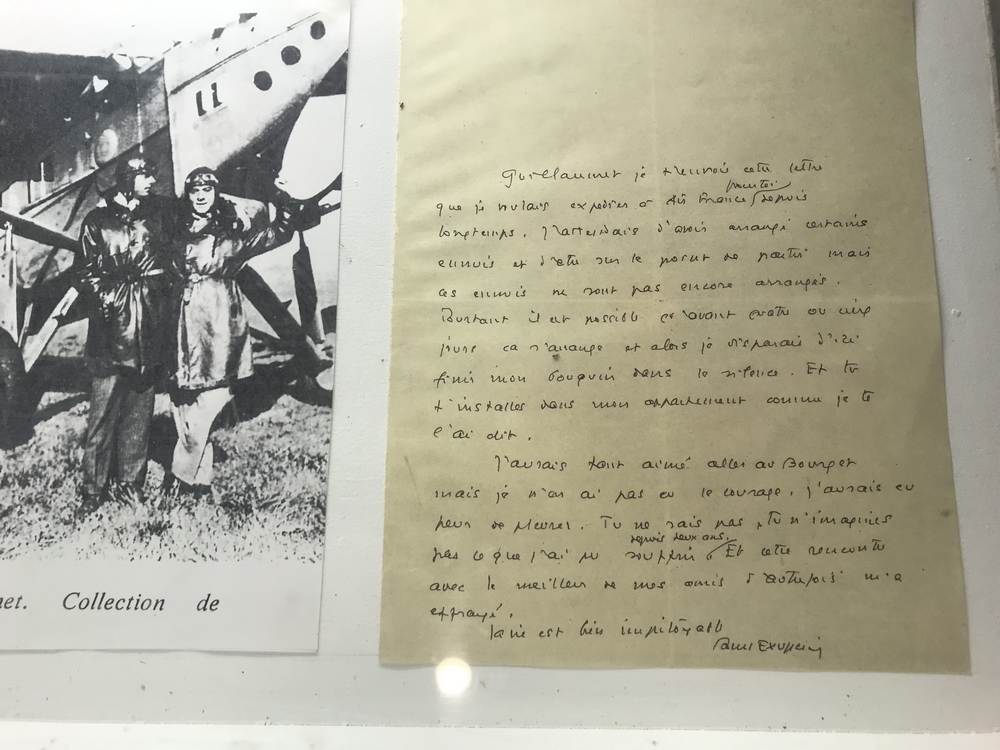 11
net. Collection de
Guillaumet je t'envoie cette lettre
que je voulais expédier à Air France depuis
longtemps. J'attendais d'avoir arrangé certains
ennuis et d'être sur le point de partir mais
ces ennuis ne sont pas encore arrangés.
Pourtant il est possible qu'avant quatre ou cinq
jours ça s'arrange et alors je disparais d'ici
finir mon bouquin dans le silence. Et tu
t'installes dans mon appartement comme je te
l'ai dit.
J'aurais tant aimé aller au Bourget
mais je n'en ai pas eu le courage. J'aurais eu
peur de pleurer. Tu ne sais pas, tu n'imagines
depuis deux ans.
pas ce que j'ai pu souffrir Et cette rencontre
avec le meilleur de mes amis d'autrefois m'a
effrayé.
la vie est bien impitoyable
Saint Exupéry